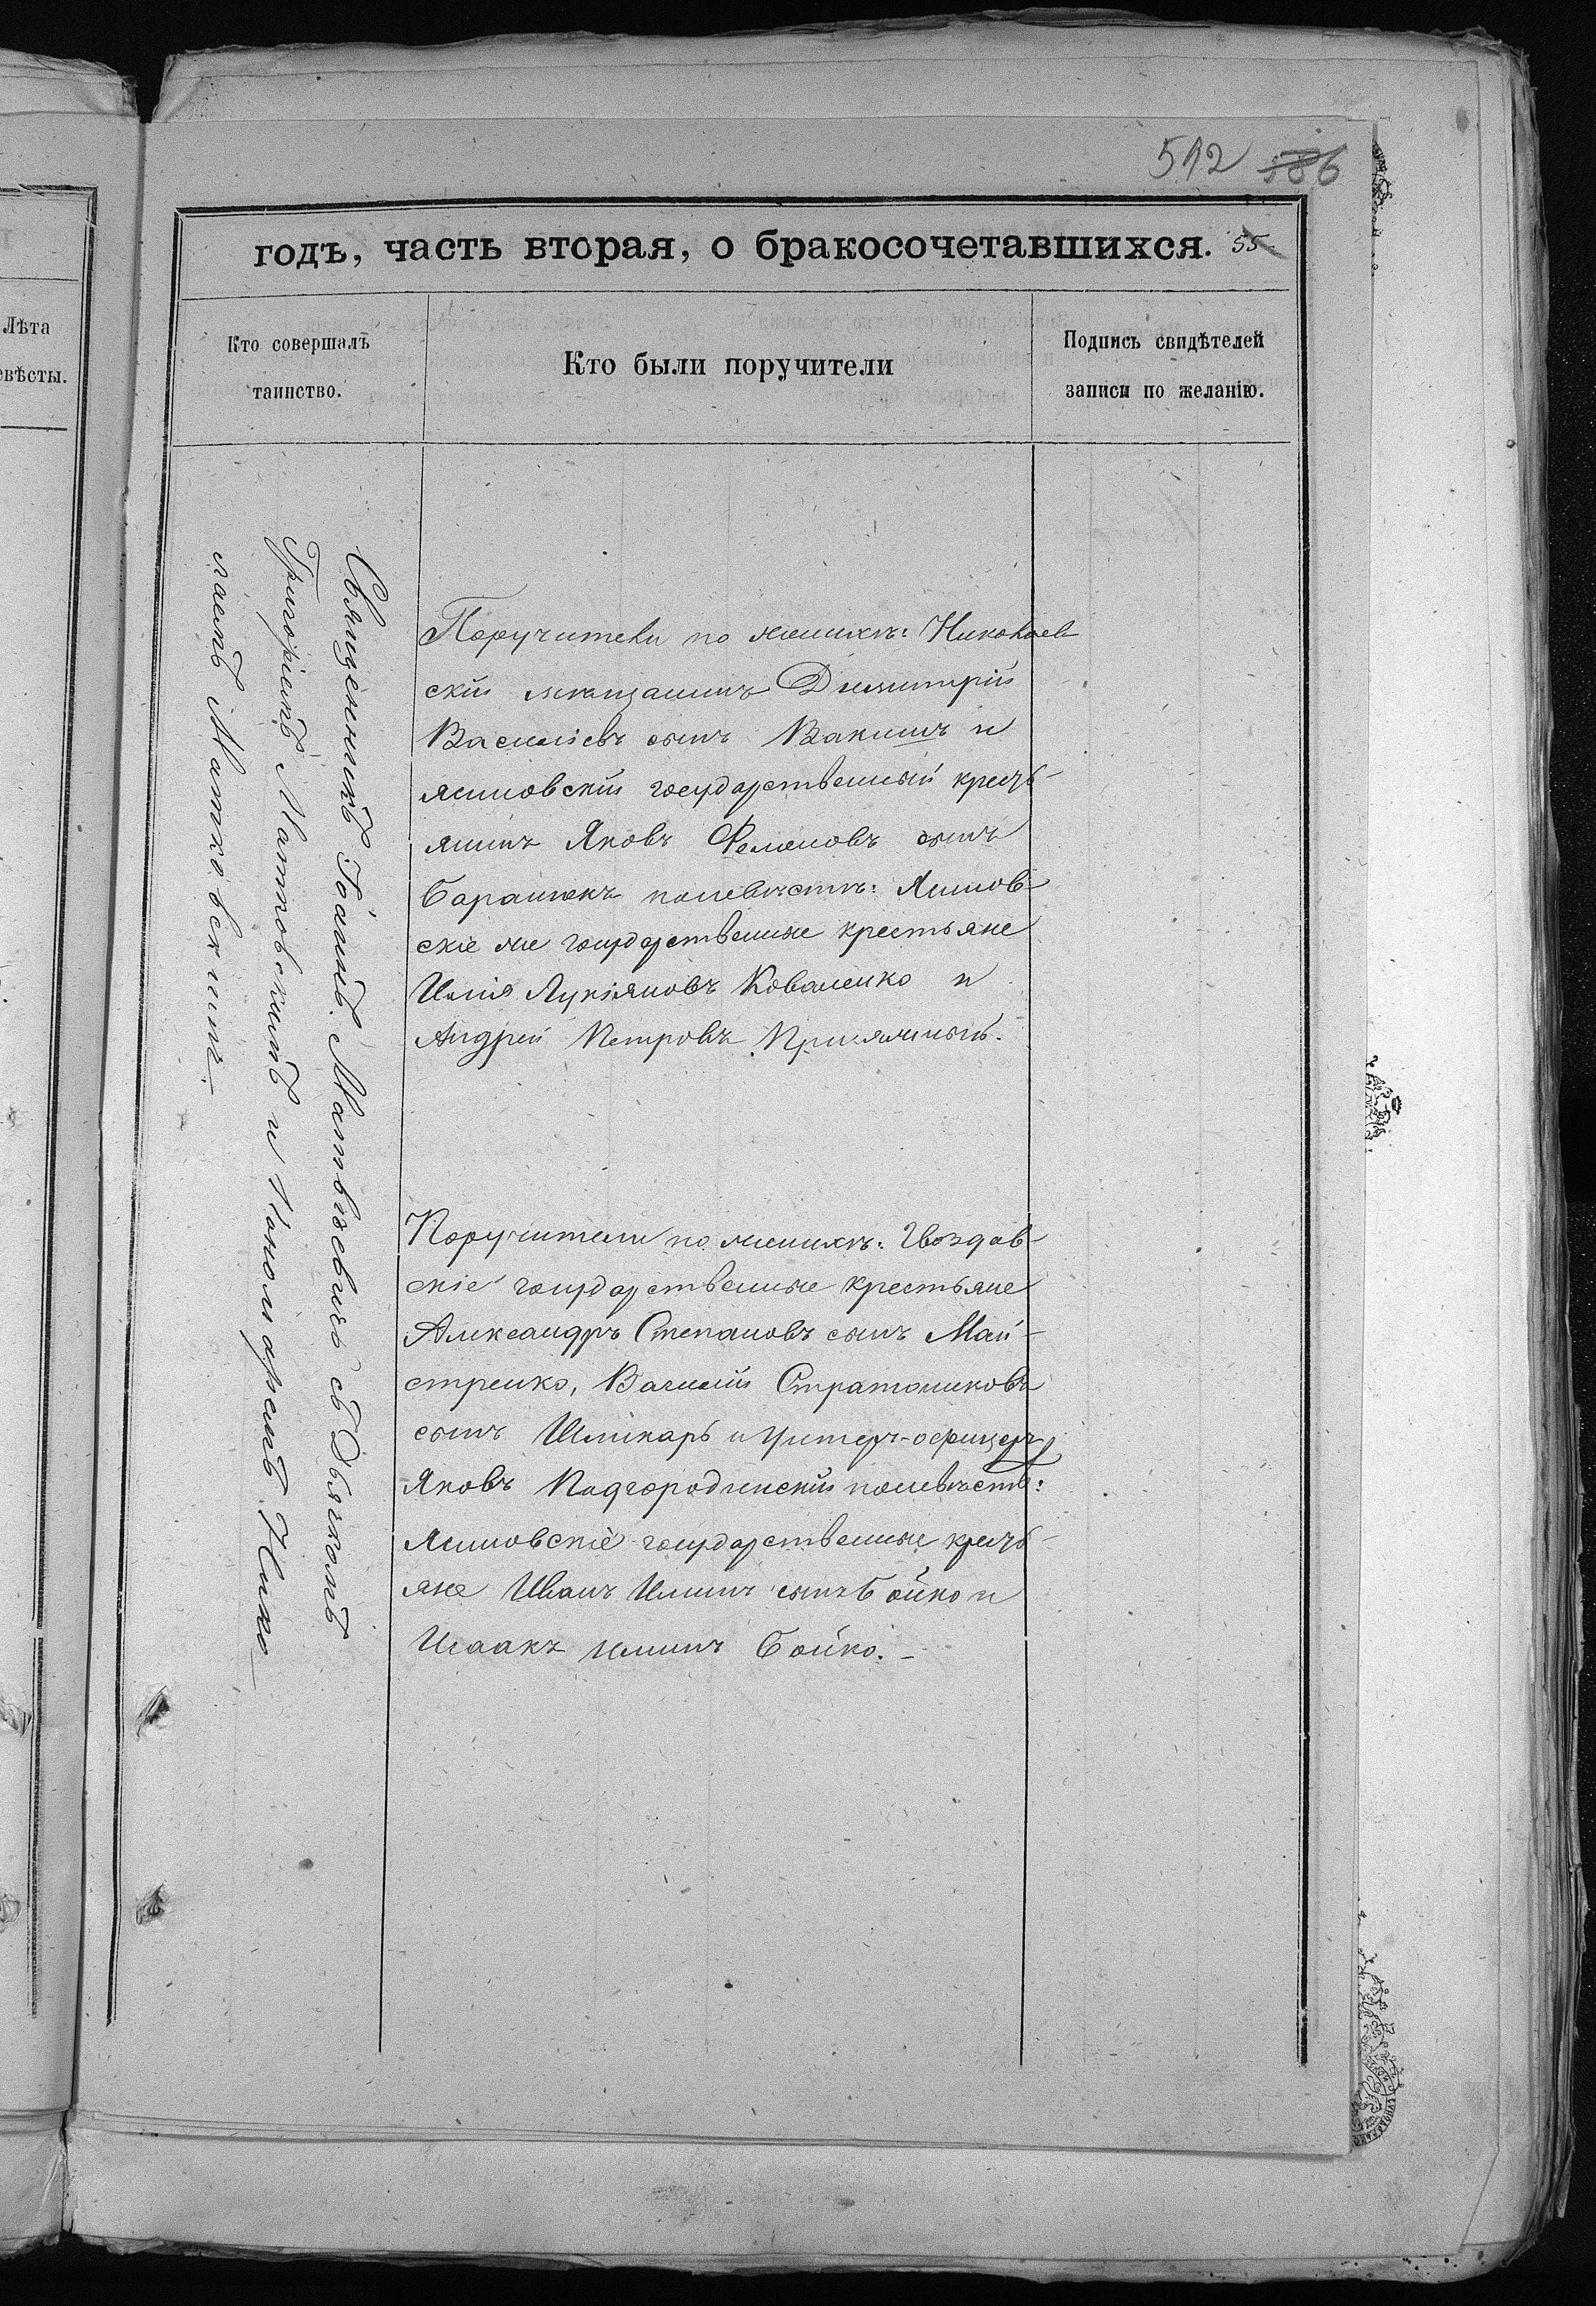 512 586
годъ, часть вторая, о бракосочетавшихся. 55
Лѣта
евѣсты.
Кто совершалъ
таинство.
Кто были поручители
Подпись свидѣтелей
записи по желанію.
Священникъ Іоаннъ Матвѣевичъ съ Дьячкомъ
Григоріемъ Матковскимъ и Пономаремъ Нико
лаемъ Матковскимъ.
Поручители по женихѣ: Николаев-
скій мѣщанинъ Димитрій
Василіевъ сынъ Вакинъ и
Ясиновскій государственный кресть-
янинъ Яковъ сынъ
Баранюкъ по невѣстѣ: Ясинов-
скіе же государственные крестьяне
Илія Лукіяновъ Коваленко и
Андрей Петровъ
Поручители по женихѣ: Гвоздав-
скіе государственные крестьяне
Александръ Степановъ сынъ Май-
стренко, Василій Стратониковъ
сынъ Шликарь и Унтеръ-офицеръ
Яковъ Подгородинскій по невѣстѣ:
Ясиновскіе государственные кресть-
яне Иванъ Илиинъ сынъ Бойко и
Исаакъ Илиинъ Бойко. -